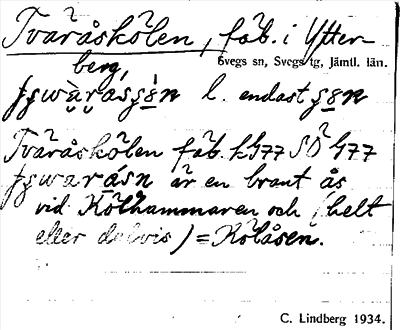 Tväråskölen, fäb. i Ytter-
berg,
Svegs sn, Svegs tg, Jämtl. län.
l. endast
Tväråskölen fäb. h 477 SO 477
är en brant ås
vid Kölhammaren och (helt
eller delvis) = Kölåsen.
C. Lindberg 1934.